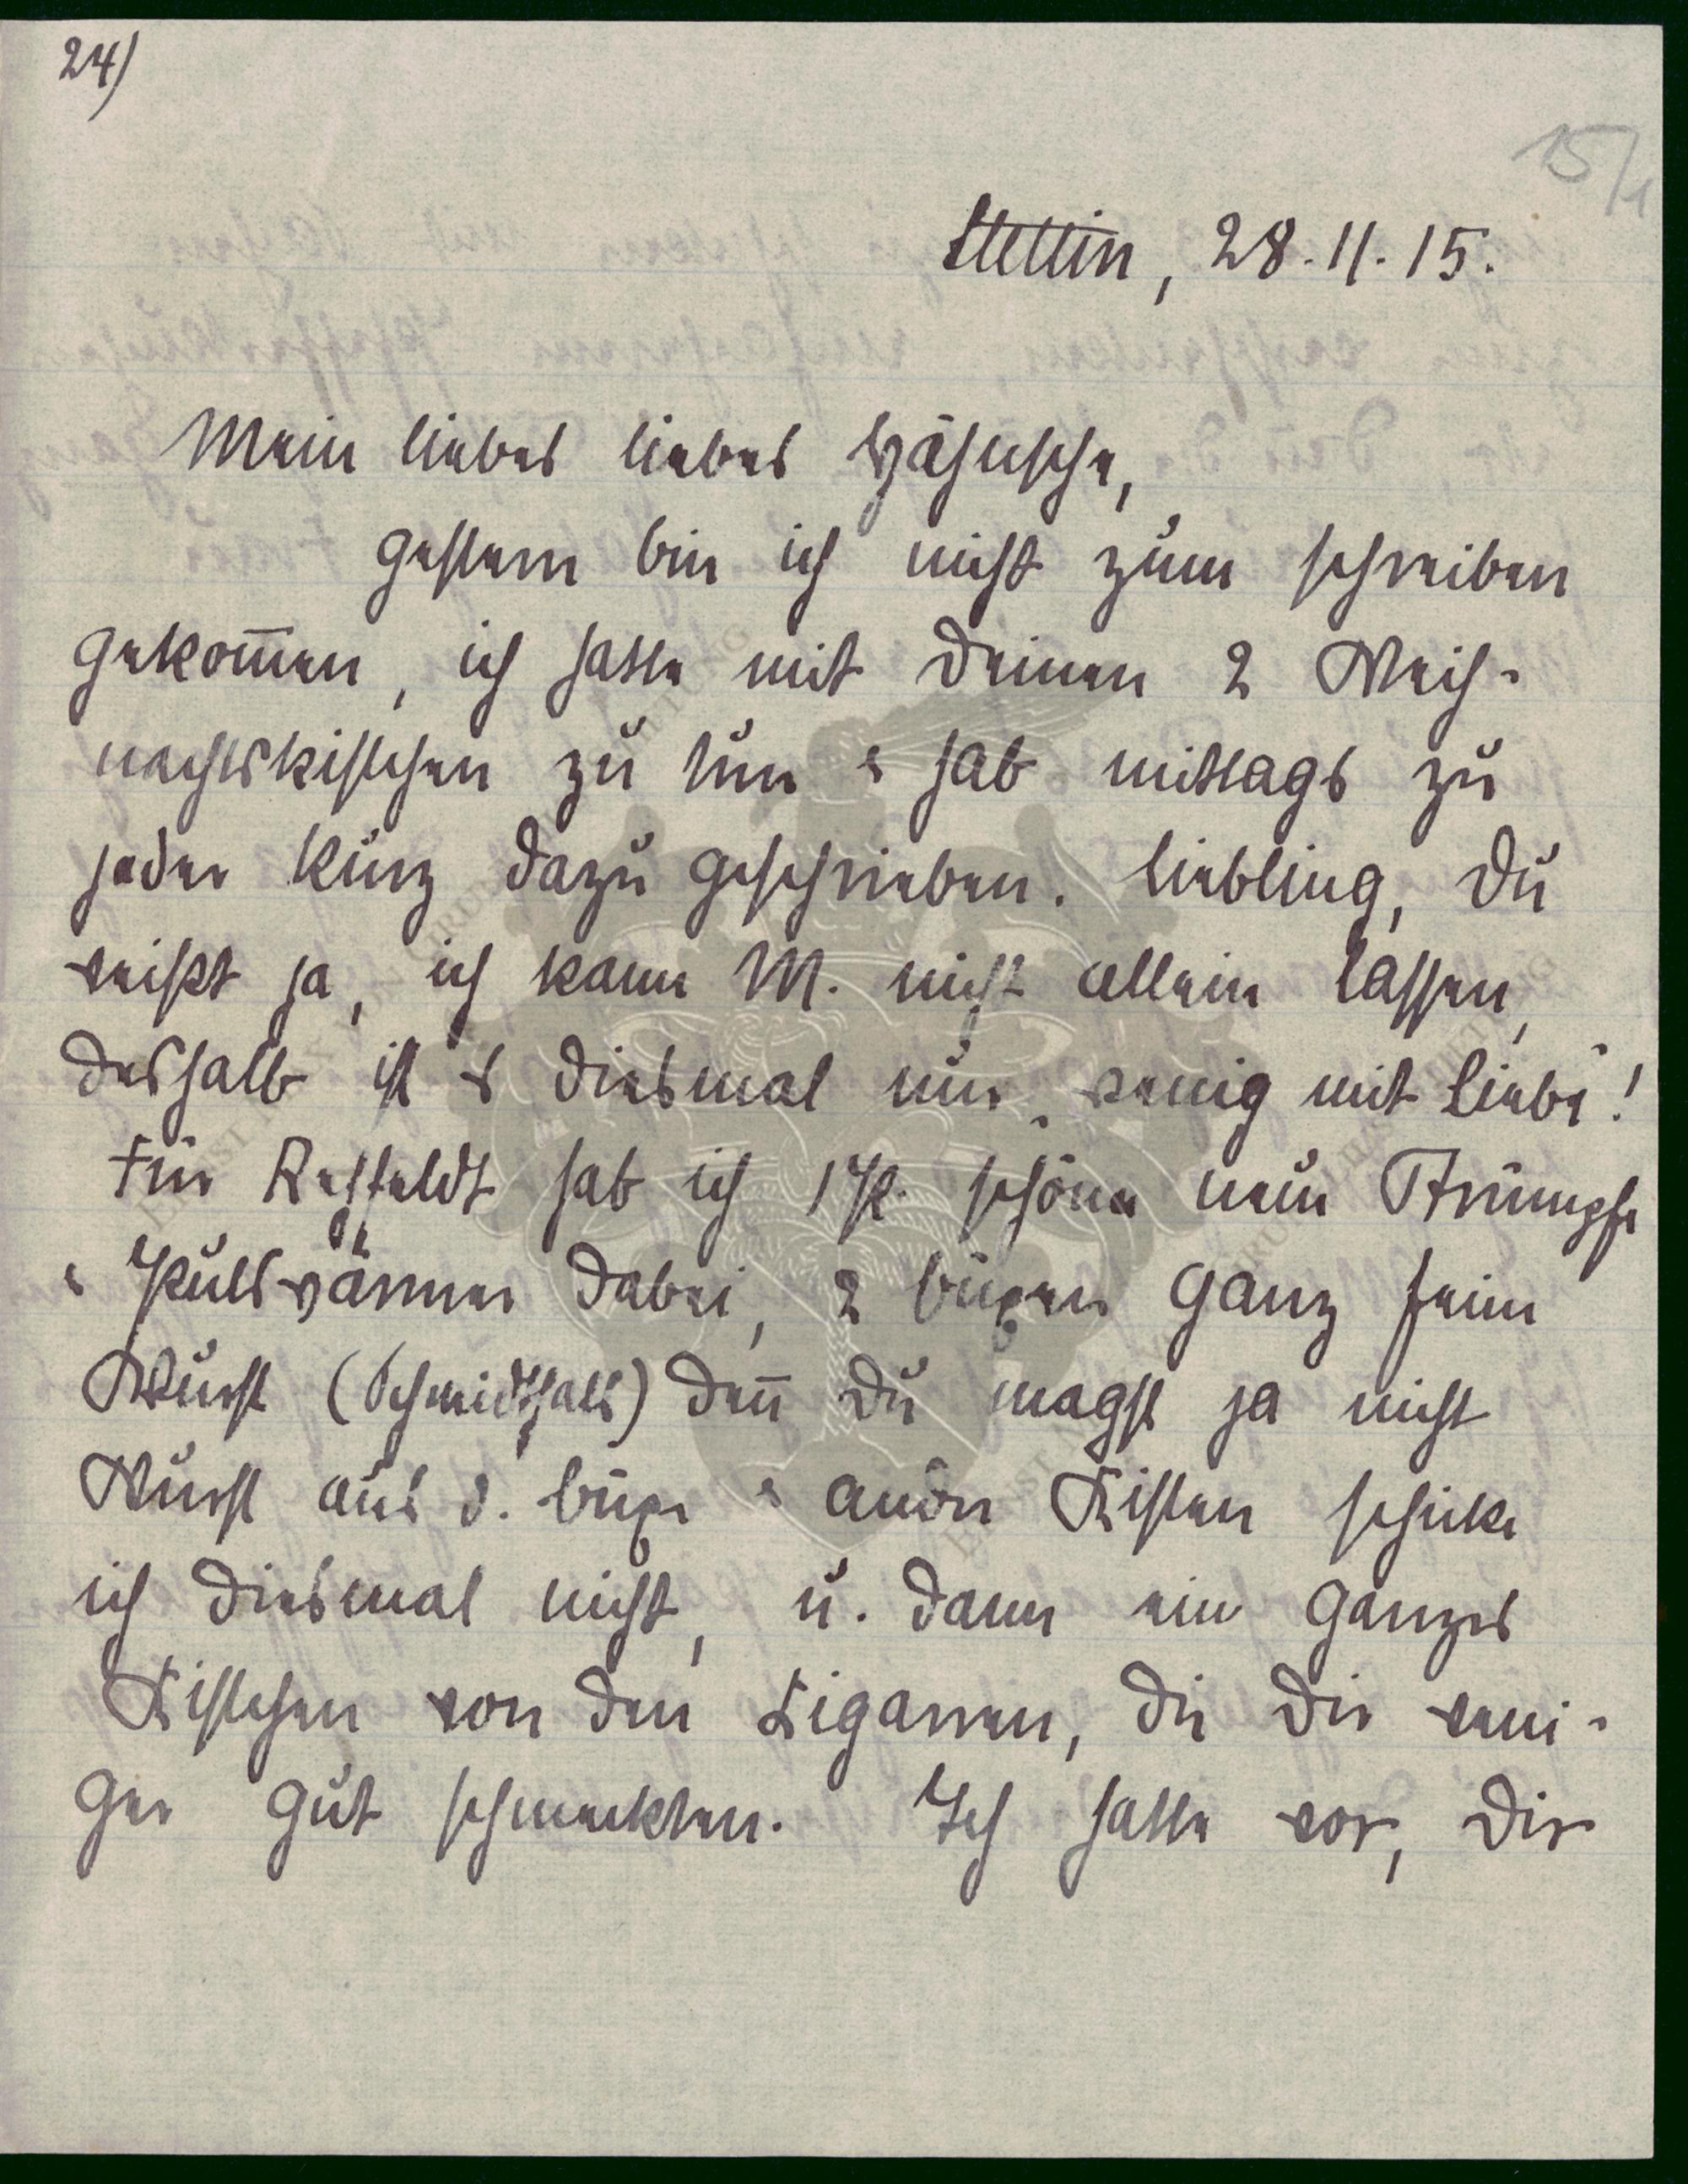 24)
15/1
Stettin, 28.11.15.
Mein liebes liebes Hähnche,
gestern bin ich nicht zum schreiben
gekom̄en, ich hatte mit Deinen 2 Weih-
nachtskistchen zu tun & hab mittags zu
jeder kurz dazu geschrieben. Liebling, Du
weißt ja, ich kann M. nicht allein lassen,
deshalb ist es diesmal nur „wenig mit Liebe“!
Für Rehfeldt hab ich 1 P. schöne neue Strümpfe
& Pulswärmer dabei, 2 Büxen ganz feine
Wurst (Schmidthals) den̄ Du magst ja nicht
Wurst aus d. Büxe & andre Kisten schicke
ich diesmal nicht, u. dann ein ganzes
Kistchen von den Zigarren, die Dir weni-
ger gut schmeckten. Ich hatte vor, Dir